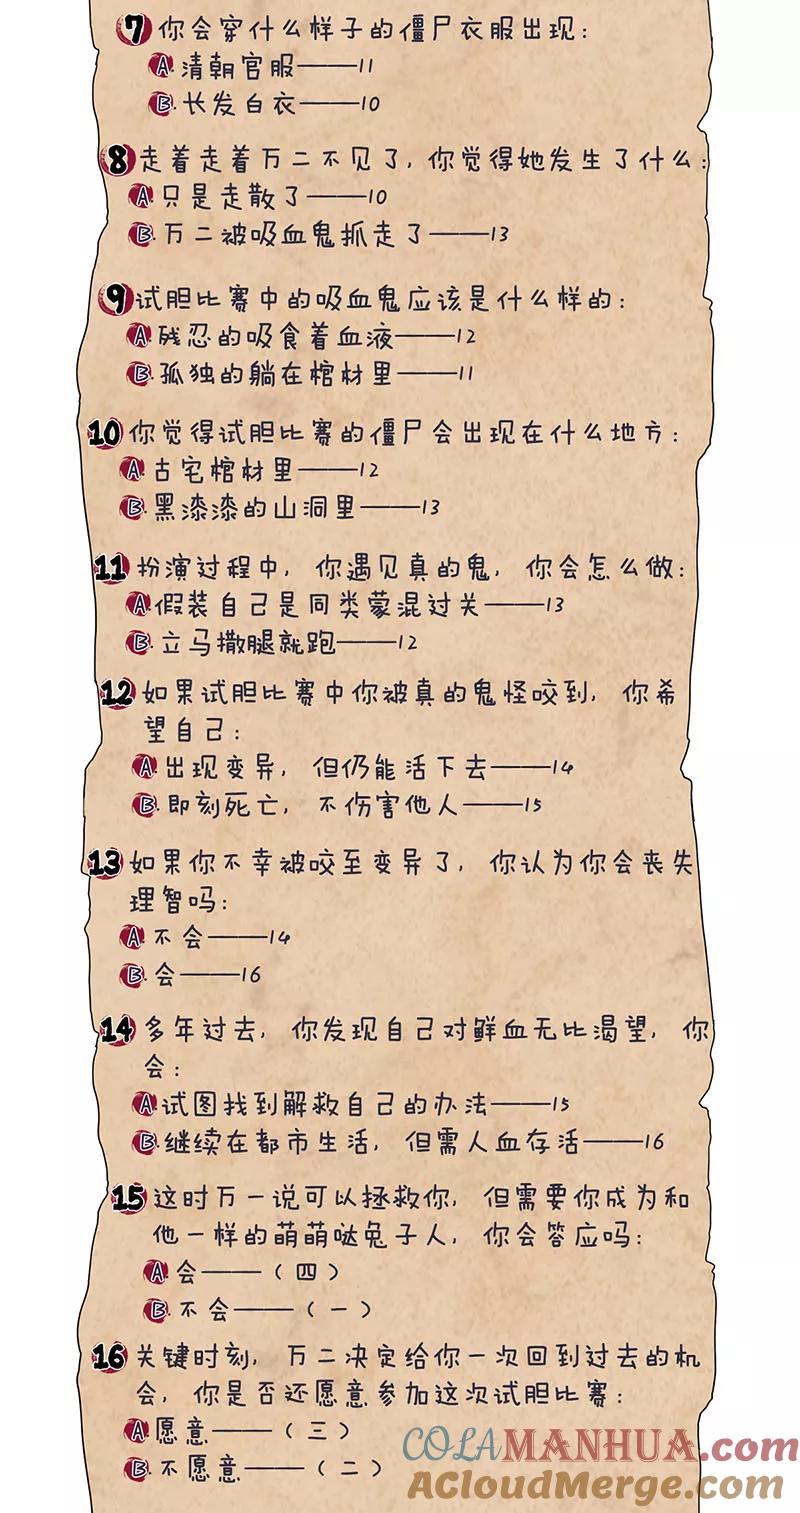 7 你会穿什么样子的僵尸衣服出现:
A.清朝官服——11
B.长发白衣——10
8 走着走着万二不见了,你觉得她发生了什么:
A.只是走散了——10
B.万二被吸血鬼抓走了——13
9 试胆比赛中的吸血鬼应该是什么样的:
A.残忍的吸食着血液——12
B.孤独的躺在棺材里——11
10 你觉得试胆比赛的僵尸会出现在什么地方:
A.古宅棺材里——12
B.黑漆漆的山洞里——13
11 扮演过程中,你遇见真的鬼,你会怎么做:
A.假装自己是同类蒙混过关——13
B.立马撒腿就跑——12
12 如果试胆比赛中你被真的鬼怪咬到,你希
望自己:
A.出现变异,但仍能活下去——14
B.即刻死亡,不伤害他人——15
13 如果你不幸被咬至变异了,你认为你会丧失
理智吗:
A.不会——14
B.会——16
14 多年过去,你发现自己对鲜血无比渴望,你
会:
A.试图找到解救自己的办法——15
B.继续在都市生活,但需人血存活——16
15 这时万一说可以拯救你,但需要你成为和
他一样的萌萌哒兔子人,你会答应吗:
A.会——(四)
B.不会——(一)
16 关键时刻,万二决定给你一次回到过去的机
会,你是否还愿意参加这次试胆比赛:
A.愿意——(三)
B.不愿意——(二)
COLAMANHUA.com
ACloudMerge.com